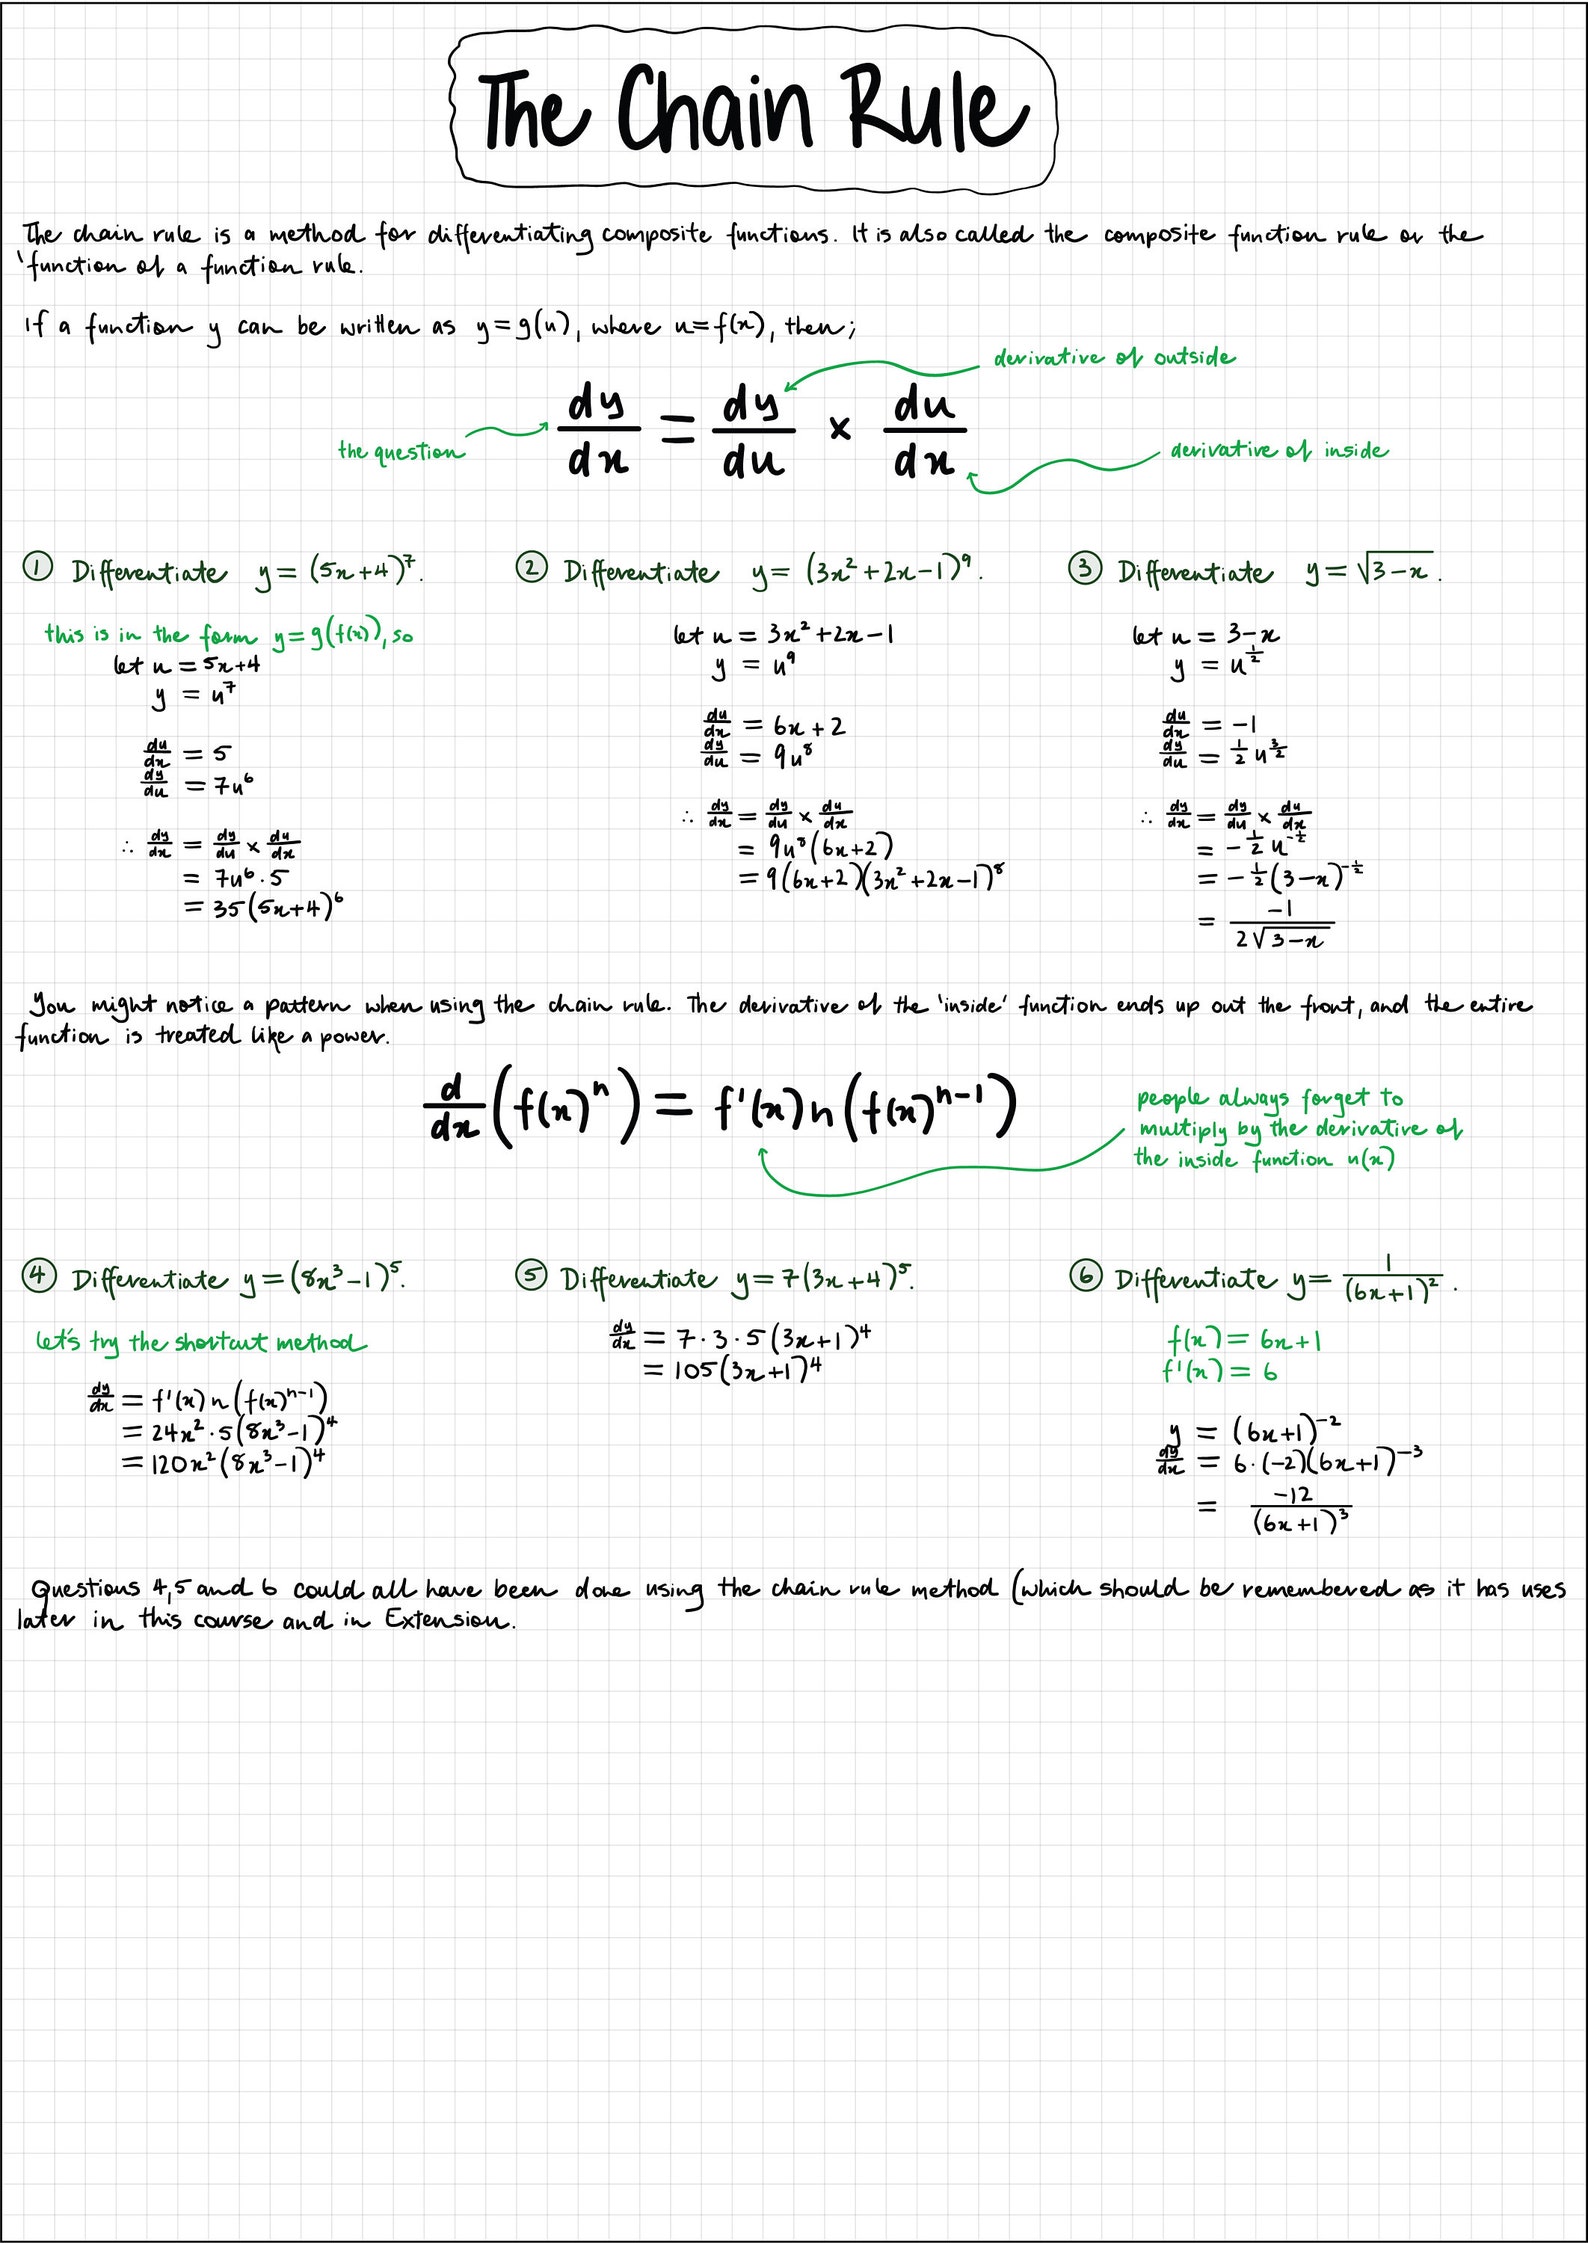 The Chain Rule
The chain rule is a method for differentiating composite functions. It is also called the composite function rule or the
'function of a function rule.
If a function y can be written as y=g(u), where u=f(x), then;
derivative of outside
dy/dx = dy/du × du/dx
the question
derivative of inside
① Differentiate y = (5x+4)⁷.
this is in the form y=g(f(x)), so
let u = 5x+4
y = u⁷
du/dx = 5
dy/du = 7u⁶
∴ dy/dx = dy/du × du/dx
= 7u⁶·5
= 35(5x+4)⁶
② Differentiate y = (3x²+2x-1)⁹.
let u = 3x²+2x-1
y = u⁹
du/dx = 6x+2
dy/du = 9u⁸
∴ dy/dx = dy/du × du/dx
= 9u⁸(6x+2)
= 9(6x+2)(3x²+2x-1)⁸
③ Differentiate y = √(3-x).
let u = 3-x
y = u^(1/2)
du/dx = -1
dy/du = 1/2 u^(3/2)
∴ dy/dx = dy/du × du/dx
= -1/2 u^(-1/2)
= -1/2(3-x)^(-1/2)
= -1/(2√(3-x))
You might notice a pattern when using the chain rule. The derivative of the 'inside' function ends up out the front, and the entire
function is treated like a power.
d/dx (f(x)ⁿ) = f'(x)n(f(x)ⁿ⁻¹)
people always forget to
multiply by the derivative of
the inside function u(x)
④ Differentiate y = (8x³-1)⁵.
let's try the shortcut method
dy/dx = f'(x)n(f(x)ⁿ⁻¹)
= 24x²·5(8x³-1)⁴
= 120x²(8x³-1)⁴
⑤ Differentiate y = 7(3x+4)⁵.
dy/dx = 7·3·5(3x+1)⁴
= 105(3x+1)⁴
⑥ Differentiate y = 1/(6x+1)².
f(x) = 6x+1
f'(x) = 6
y = (6x+1)⁻²
dy/dx = 6·(-2)(6x+1)⁻³
= -12/(6x+1)³
Questions 4,5 and 6 could all have been done using the chain rule method (which should be remembered as it has uses
later in this course and in Extension.